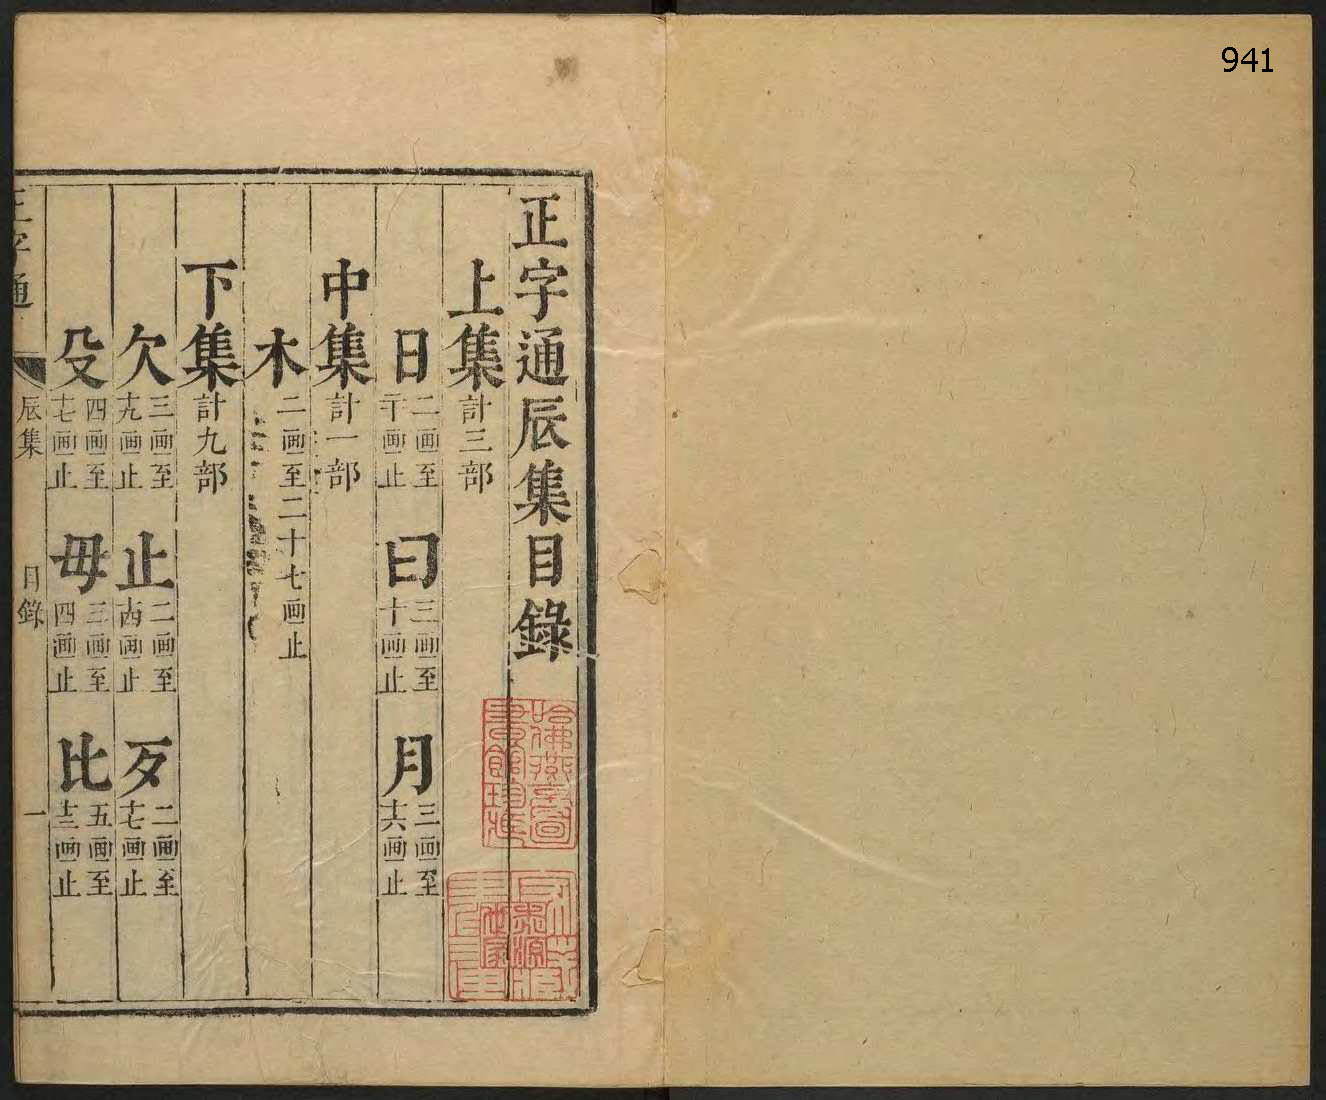 941
正字通辰集目錄
上集計三部
日二画至二十画止　曰三画至十画止　月三画至十六画止
中集計一部
木二画至二十七画止
下集計九部
欠三画至十九画止　止二画至十四画止　歹二画至十七画止
殳四画至十七画止　毋三画至四画止　比五画至十三画止
正字通　辰集　目錄　一
哈佛燕京圖書館珍藏